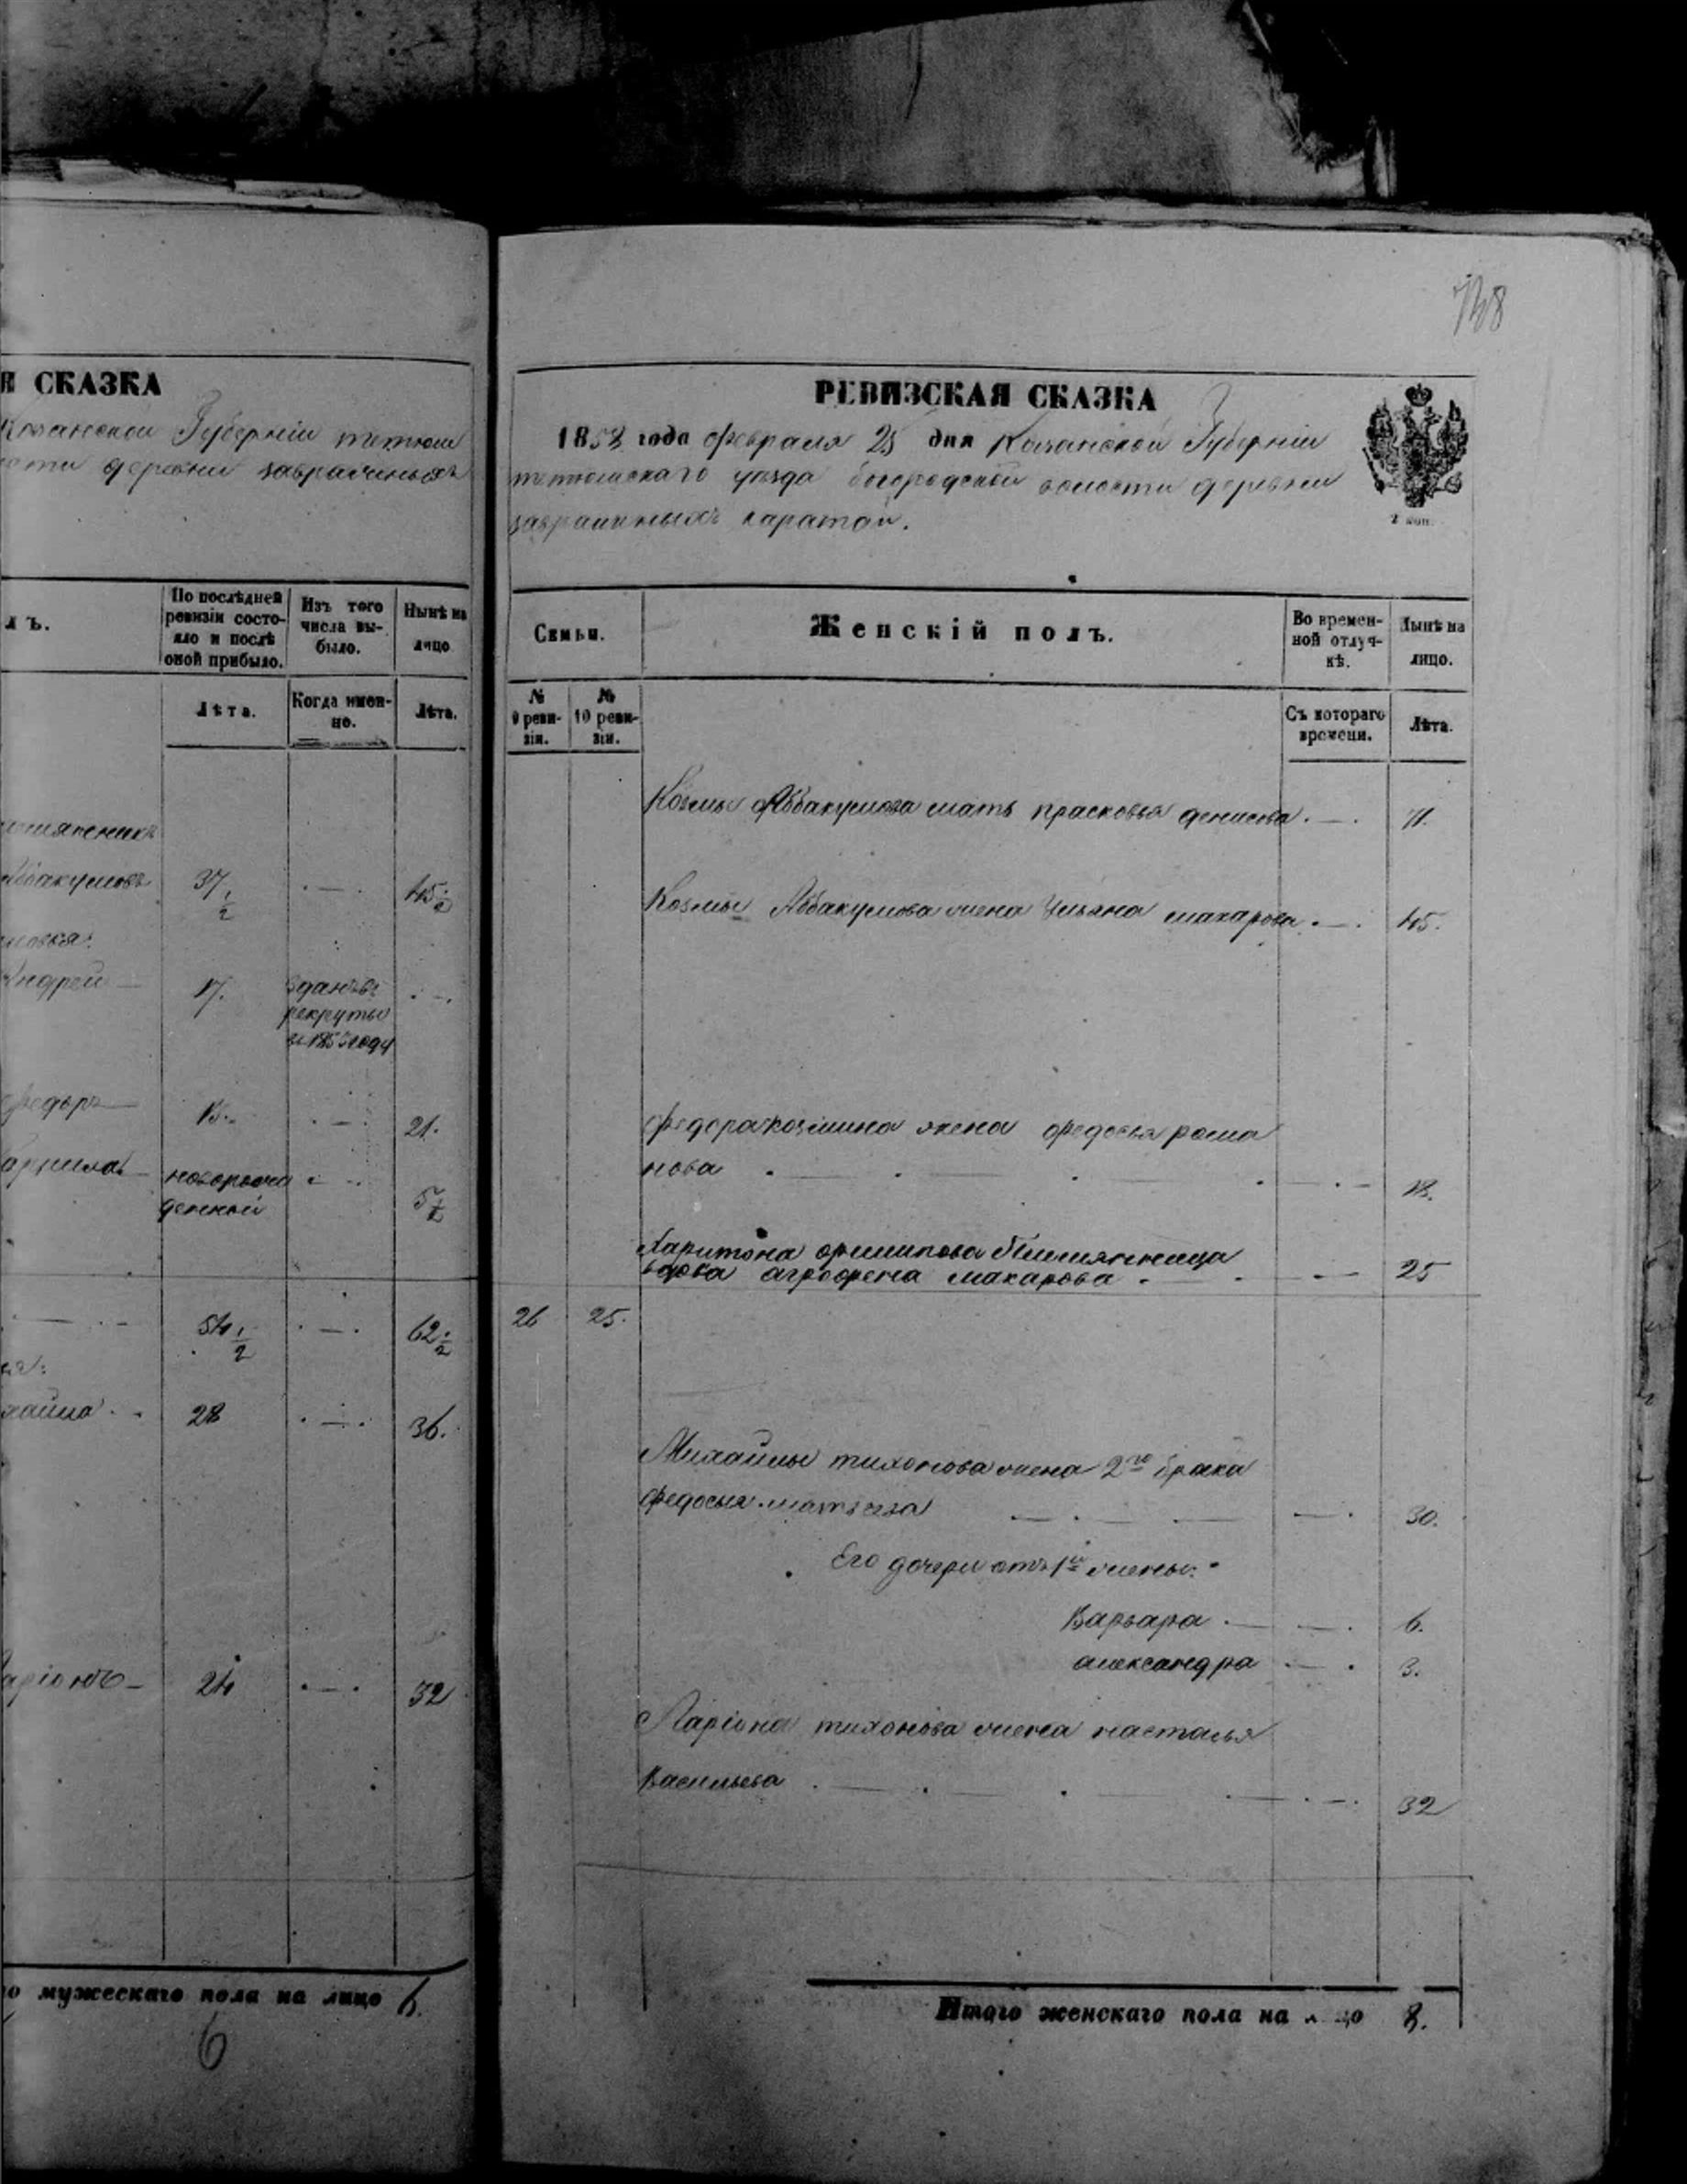 СКАЗКА
Казанской Губерніи тетюш
деревни заврашныхъ
лъ.
По послѣдней
ревизіи состо-
яло и послѣ
оной прибыло.
Изъ того
числа вы-
было.
Нынѣ на
лицо
Лѣта.
Когда имен-
но.
Лѣта.
Аббакумовъ
37 1/2
45 1/2
Андрей
17.
зданъ въ
рекруты
году
Федоръ
13.
21.
новорож
денный
5 1/2
54 1/2
62 1/2
хайла
28
36.
аріонъ
24
32
го мужескаго пола на лицо 6.
6
738
РЕВИЗСКАЯ СКАЗКА
1858 года февраля 25 дня Казанской Губерніи
тетюшскаго уѣзда богородской волости деревни
заврашныхъ каратай.
2 коп.
Семьи.
Женскій полъ.
Во времен-
ной отлуч-
кѣ.
Нынѣ на
лицо.
№
9 реви-
зіи.
№
10 реви-
зіи.
Съ котораго
времени.
Лѣта.
Козмы Аббакумова мать прасковья денисова 71.
Козмы Аббакумова жена Ульяна макарова 45.
Федора козмина жена федосья рома
нова 18.
Харитона филипова племянница
вдова агрофена макарова 25
26 25.
Михайлы тихонова жена 2го брака
федосья матвеева 30.
Его дочери отъ 1й жены
Варвара 6.
александра 3.
Ларіона тихонова жена настасья
Васильева 32
Итого женскаго пола на лицо 8.